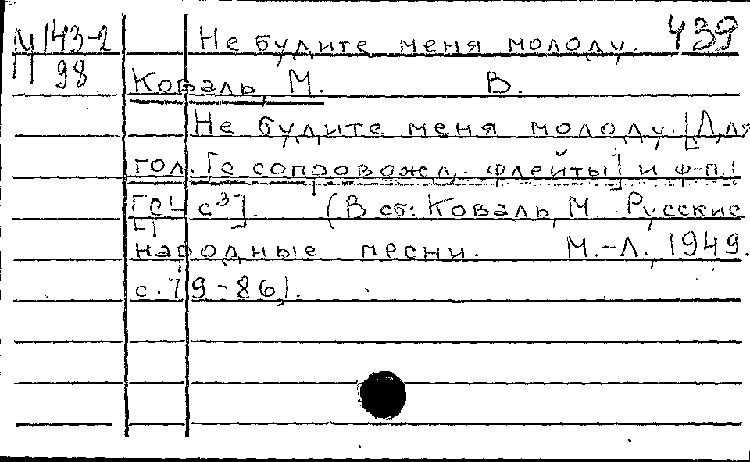 М 143-2 Не будите меня молоду. 439
П 98 Коваль, М. В.
Не будите меня молоду. [Для
гол. [с сопровожд. флейты] и ф-п.]
с³]. (В сб: Коваль, М. Русские
народные песни. М.-Л., 1949.
с. 79-86).